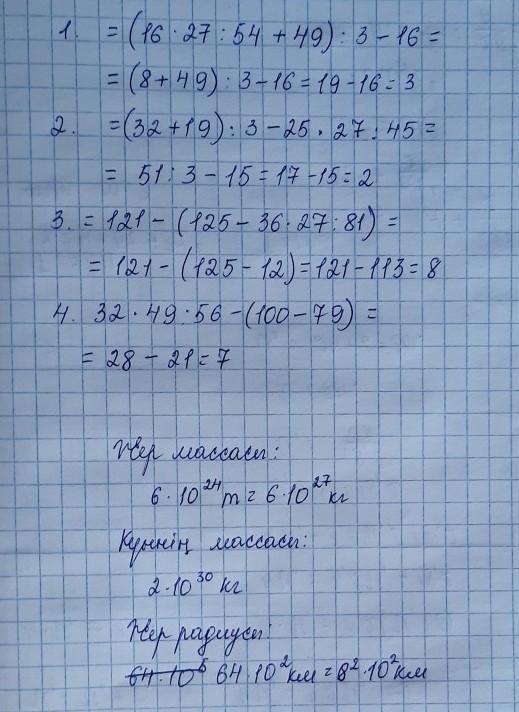 1. = (16 · 27 : 54 + 49) : 3 - 16 =
= (8 + 49) : 3 - 16 = 19 - 16 = 3
2. = (32 + 19) : 3 - 25 · 27 : 45 =
= 51 : 3 - 15 = 17 - 15 = 2
3. = 121 - (125 - 36 · 27 : 81) =
= 121 - (125 - 12) = 121 - 113 = 8
4. 32 · 49 : 56 - (100 - 79) =
= 28 - 21 = 7
Жер массасы:
6 · 10²⁴ т = 6 · 10²⁷ кг
Күннің массасы:
2 · 10³⁰ кг
Жер радиусы:
64 · 10⁵ 64 · 10² км = 8² · 10² км